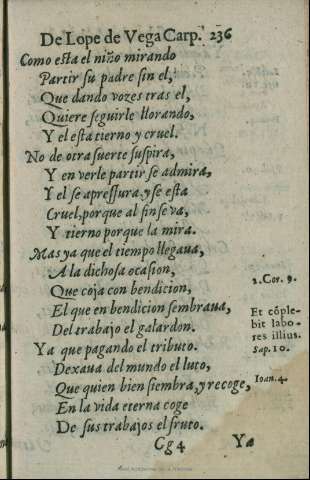 De Lope de Vega Carp. 236
Como esta el niño mirando
Partir su padre sin el,
Que dando vozes tras el,
Quiere seguirle llorando,
Y el esta tierno y cruel.
No de otra suerte suspira,
Y en verle partir se admira,
Y el se apressura, y se esta
Cruel, porque al fin se va,
Y tierno porque la mira.
Mas ya que el tiempo llegaua,
A la dichosa ocasion,
Que coja con bendicion,
2. Cor. 9.
El que en bendicion sembraua,
Del trabajo el galardon.
Et cõple-
bit labo-
res illius.
Sap. 10.
Ya que pagando el tributo.
Dexaua del mundo el luto,
Que quien bien siembra, y recoge,
Ioan. 4.
En la vida eterna coge
De sus trabajos el fruto.
Gg 4 Ya